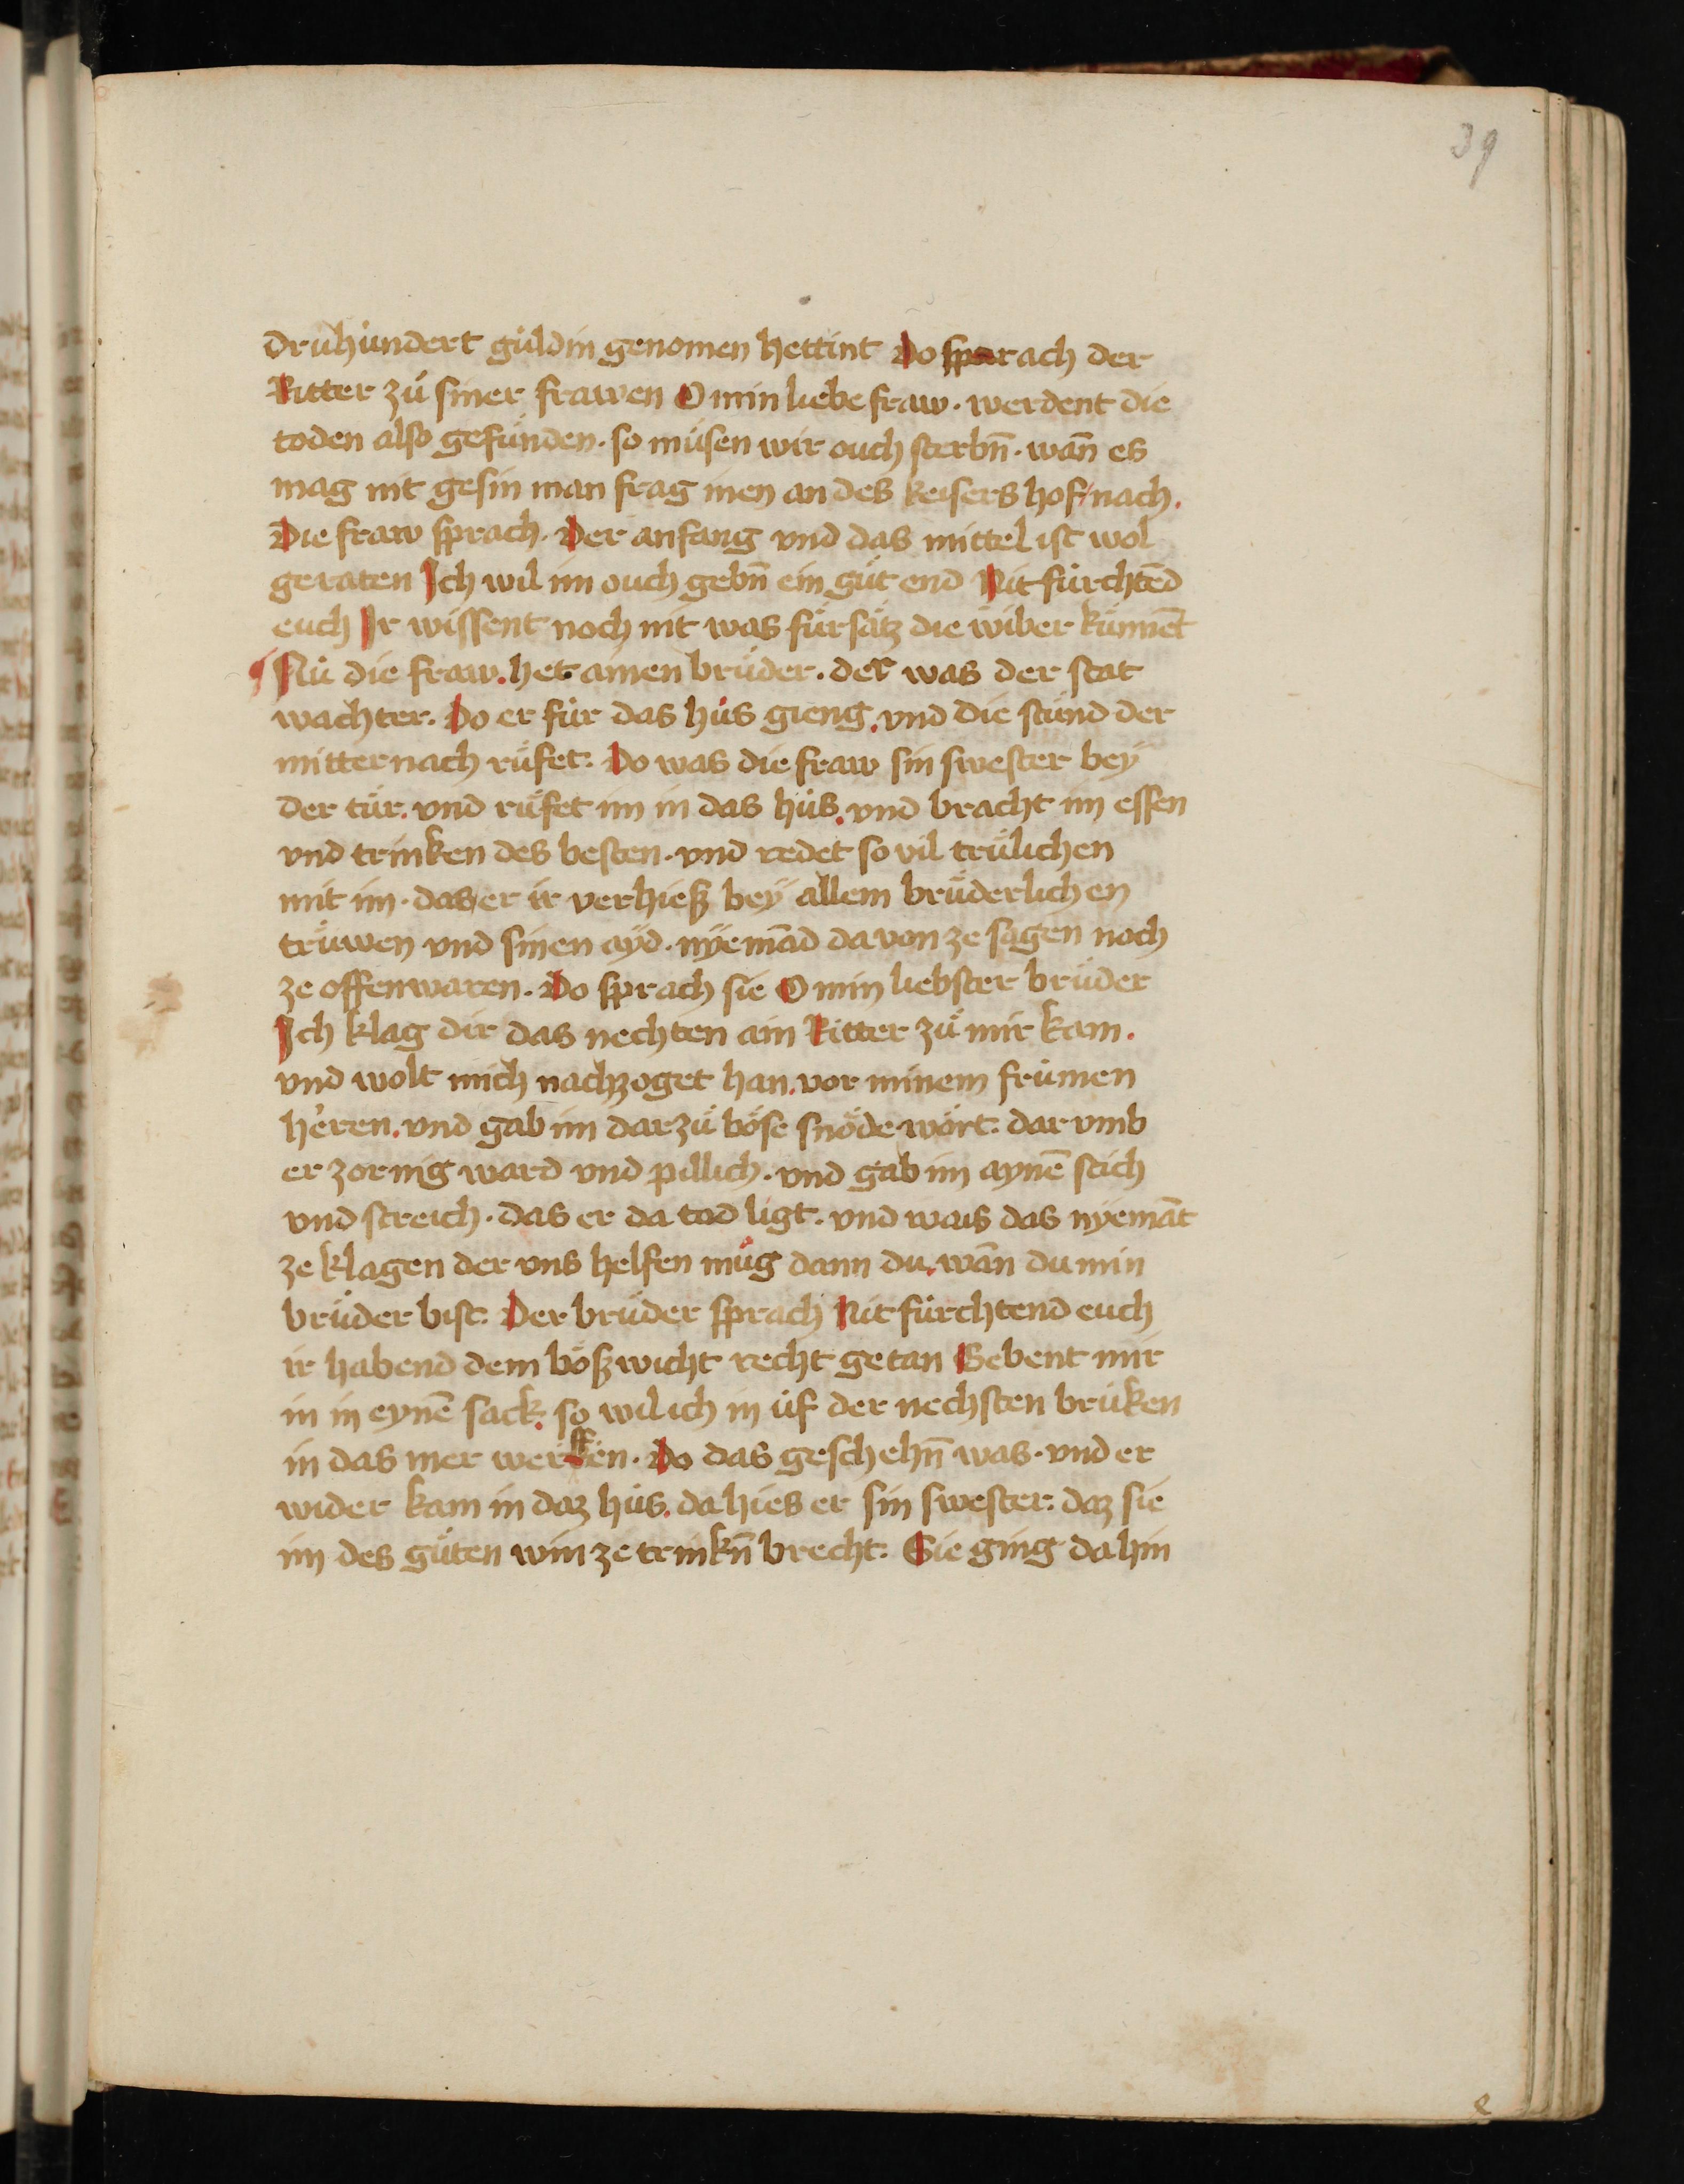 39
druhundert guldin genomen hettint Do sprach der
Ritter zů siner frawen O min liebe fraw · werdent die
toden also gefunden · so můsen wir ouch sterbn̄ · wan̄ es
mag nit gesin man frag inen an des keisers hof nach.
Die fraw sprach · Der anfang vnd das mittel ist wol
geraten Ich wil im ouch gebn̄ ein gůt end Nit fürchtēd
euch Ir wissent noch nit was fürsätz die wiber künnēt
¶ Nů die fraw. het ainen brůder · der was der stat
wachter. Do er für das hůs gieng. vnd die stund der
mitternach růfet: Do was die fraw sin swester beÿ
der tür. vnd růfet im in das hůs. vnd bracht im essen
vnd trinken des besten · vnd redet so vil trülichen
mit im · das er ir verhieß beÿ allem brüderlichen
trüwen vnd sinen ayd · nÿemād davon ze sagen noch
ze offenwaren · Do sprach sie O min liebster brůder
Ich klag dir das nechten ain Ritter zů mir kam.
vnd wolt mich nachzoget han. vor minem frumen
heren. vnd gab im darzů böse snöde wört: dar vmb
er zornig ward vnd pillich · vnd gab im aynē stich
vnd streich · das er da tod ligt · vnd wais das nÿemāt
ze klagen der vns helfen můg dann du. wān du min
brůder bist: Der brůder sprach Nit fürchtend euch
ir habend dem bößwicht recht getan Gebent mir
in in eynē sack. so wil ich in uf der nechsten bruken
in das mer werffen · Do das geschehn̄ was · vnd er
wider kam in daz hůs. da hies er sin swester: daz sie
im des gůten win ze trinkn̄ brecht: Sie ging dahin
e